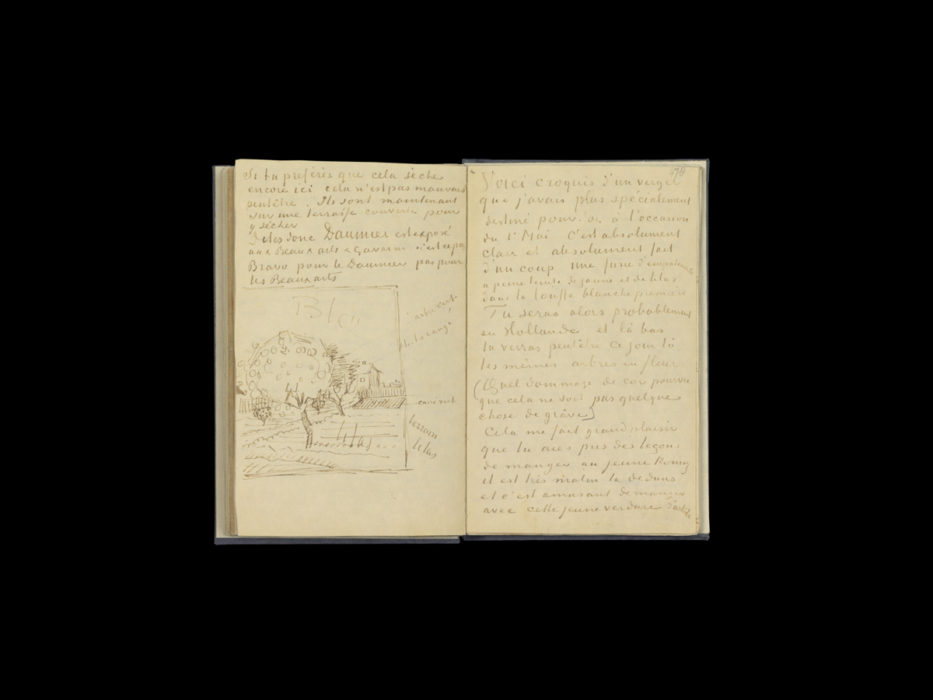 Si tu préfères que cela sèche
encore ici cela n'est pas mauvais
peutêtre. Ils sont maintenant
sur une terrasse couverte pour
y sécher
Dites donc Daumier est exposé
aux Beaux arts & Gavarni
Bravo pour le Daumier pas pour
les Beaux arts
Bleu
carmine
terrain
lilas
lilas
Voici croquis d'un verger
que j'avais plus spécialement
destiné pour toi à l'occasion
du 1r Mai. C'est absolument
clair et absolument fait
d'un coup. Une
à peine teinté de jaune et de lilas
dans la touffe blanche première
Tu seras alors probablement
en Hollande et là bas
tu verras peutêtre ce jour là
les mêmes arbres en fleur
que cela ne soit pas quelque
chose de grâve)
Cela me fait grand plaisir
que tu aies pris des leçons
de manger au jeune Koning
il est très malin là dedans
et c'est amusant de manger
avec cette jeune verdure